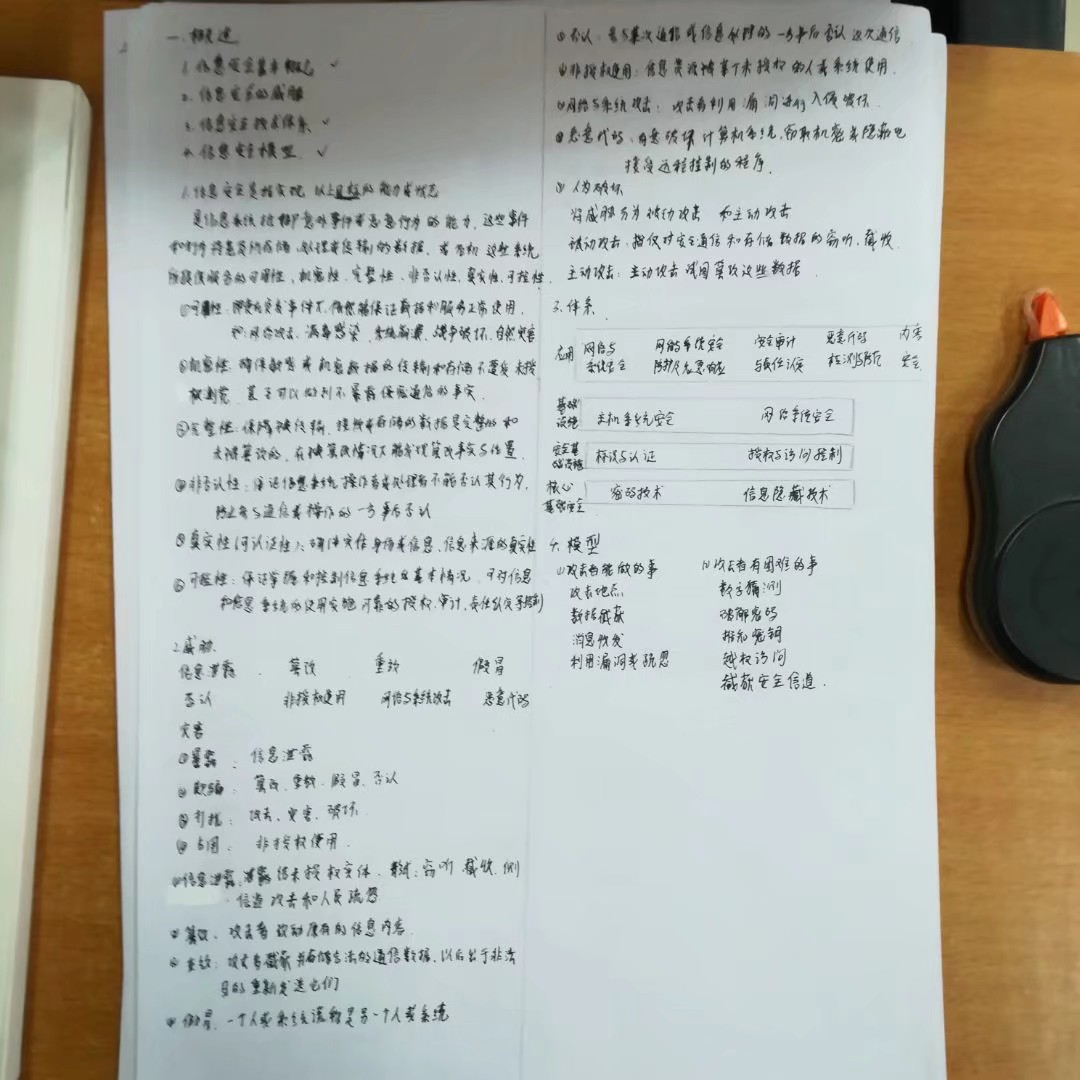 一.概述
1.信息安全基本概念 ✓
2.信息安全的威胁
3.信息安全技术体系 ✓
4.信息安全模型 ✓
1.信息安全是指实现以上目标的能力或状态
是信息系统抵御意外事件或恶意行为的能力,这些事件
和行为将危及所存储、处理或传输的数据,或否机这些系统
所提供服务的可用性、机密性、完整性、非否认性、真实性、可控性.
①可用性:即使在突发事件下,仍然能保证数据和服务正常使用,
如:网络攻击、病毒感染、系统崩溃、战争破坏、自然灾害
②机密性:确保敏感或机密数据的传输和存储不遭受未授
权浏览,甚至可以做到不暴露保密通信的事实.
③完整性:保障被传输、接收或存储的数据是完整的和
未被篡改的,在被篡改情况下能发现篡改事实与位置.
④非否认性:保证信息系统操作者或处理者不能否认其行为,
防止参与通信或操作的一方事后否认
⑤真实性(可认证性):确保实体身份或信息、信息来源的真实性
⑥可控性:保证掌握和控制信息系统的基本情况,可对信息
和信息系统的使用实施可靠的授权、审计、责任认定等控制
2.威胁.
信息泄露 篡改 重放 假冒
否认 非授权使用 网络与系统攻击 恶意代码
灾害
①暴露: 信息泄露
②欺骗: 篡改、重放、假冒、否认
③打扰: 攻击、灾害、破坏
④占用: 非授权使用.
①信息泄露:泄露给未授权实体, 窃听、截收、侧
信道攻击和人员疏忽
②篡改:攻击者改动原有的信息内容.
③重放:攻击者截获并存储合法的通信数据,以后出于非法
目的重新发送它们
④假冒:一个人或系统谎称是另一个人或系统
⑤否认:参与某次通信或信息处理的一方事后否认这次通信
⑥非授权使用:信息资源被某个未授权的人或系统使用.
⑦网络与系统攻击:攻击者利用漏洞进行入侵破坏.
⑧恶意代码:有意破坏计算机系统,窃取机密或隐蔽地
接受远程控制的程序.
⑨人为破坏
将威胁分为被动攻击和主动攻击
被动攻击:指仅对安全通信和存储数据的窃听、截收.
主动攻击:主动攻击试图篡改这些数据.
3.体系.
应用 网络与 网络系统安全 安全审计 恶意代码 内容
系统安全 防护与应急响应 与责任认定 检测与防范 安全
基础
设施 主机系统安全 网络系统安全
安全基
础设施 标识与认证 授权与访问控制
核心
基础安全 密码技术 信息隐藏技术
4.模型
(1)攻击者能做的事 (2)攻击者有困难的事
攻击地点. 数字猜测
数据截获 破解密码
消息收发 推知密钥
利用漏洞或疏忽 越权访问
截获安全信道.